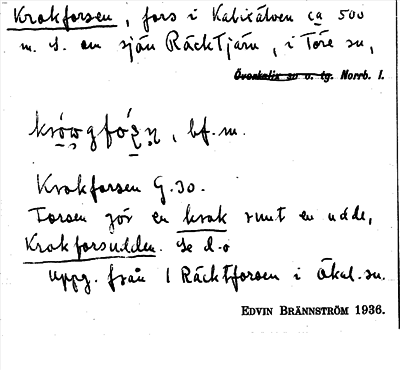 Krokforsen, fors i Kalixälven ca 500
m. S. om sjön Räcktjärn, i Töre sn,
Överkalix sn o. tg. Norrb. l.
bf. m.
Krokforsen G. 30.
Forsen gör en krok runt en udde,
Krokforsudden. Se d. o
Uppg. från Räcktforsen i Ökal. sn.
EDVIN BRÄNNSTRÖM 1936.